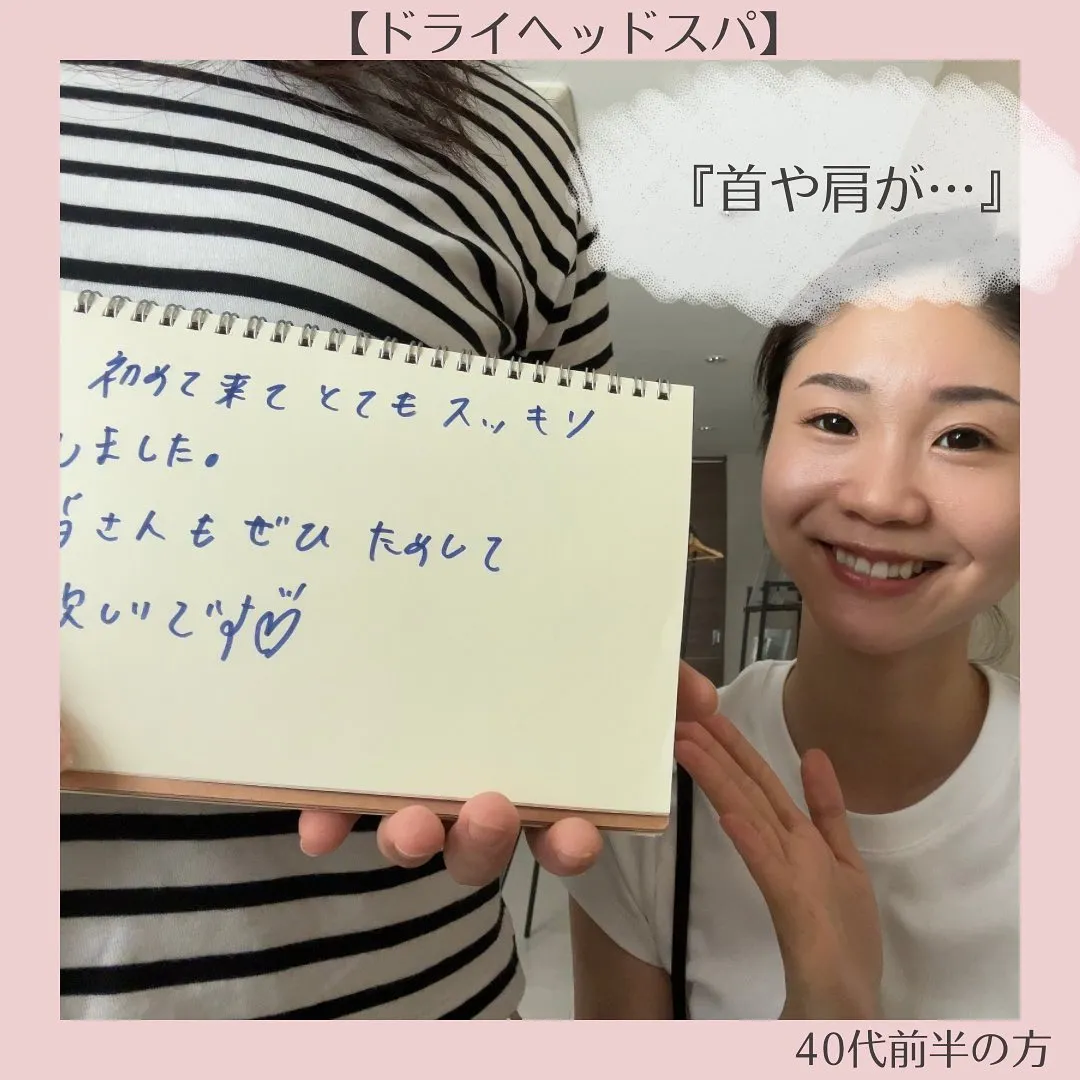 【ドライヘッドスパ】
『首や肩が…』
初めて来て とても スッキリ
しました。
皆さんも ぜひ ためして
欲しいです♡
40代前半の方